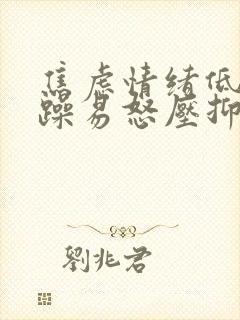 焦虑情绪低
躁易怒壓抑
劉兆君